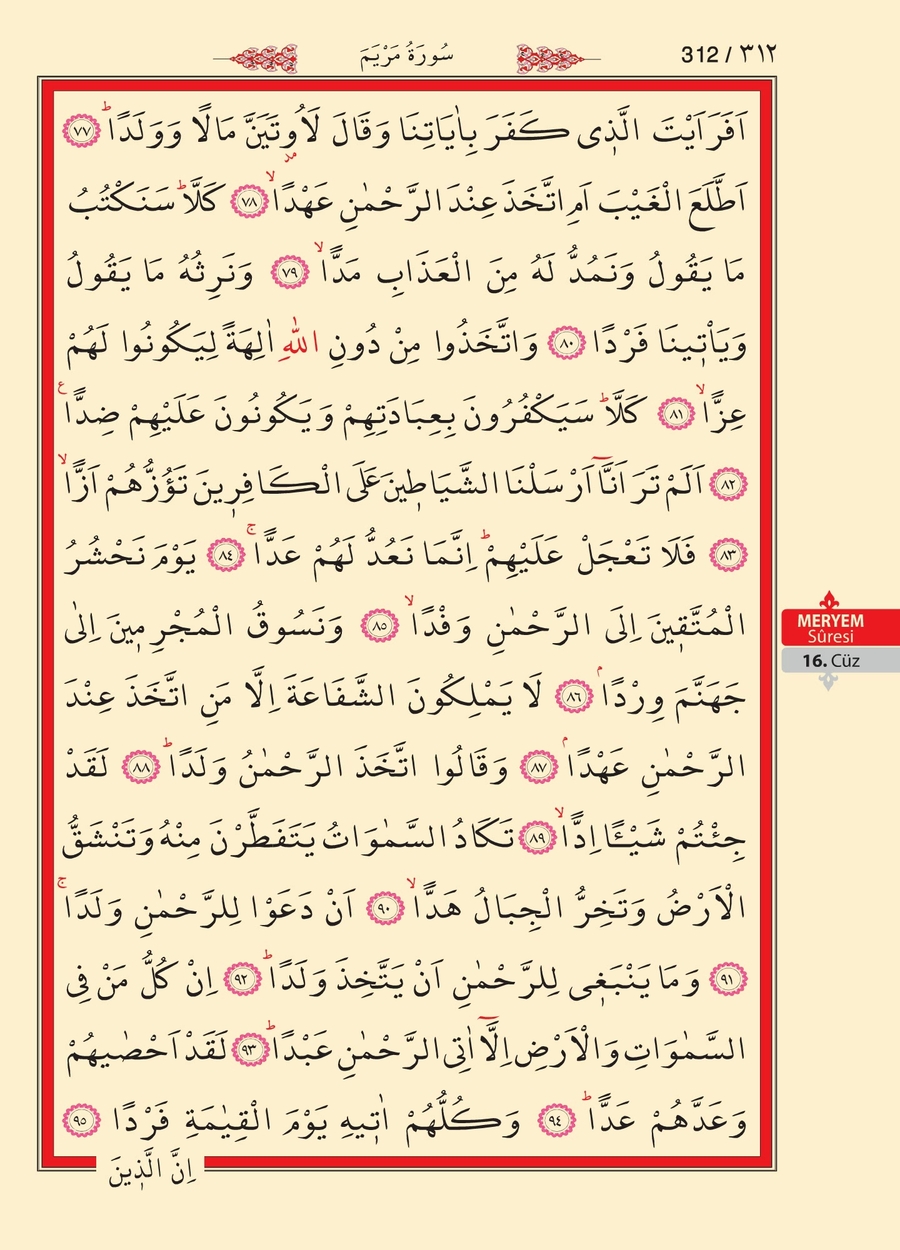 312 / ٣١٢
سُورَةُ مَرْيَمَ
اَفَرَاَيْتَ الَّذ۪ى كَفَرَ بِاٰيَاتِنَا وَقَالَ لَاُوتَيَنَّ مَالًا وَوَلَدًاۜ ﴿٧٧﴾
اَطَّلَعَ الْغَيْبَ اَمِ اتَّخَذَ عِنْدَ الرَّحْمٰنِ عَهْدًاۙ ﴿٧٨﴾ كَلَّاۜ سَنَكْتُبُ
مَا يَقُولُ وَنَمُدُّ لَهُ مِنَ الْعَذَابِ مَدًّاۙ ﴿٧٩﴾ وَنَرِثُهُ مَا يَقُولُ
وَيَاْت۪ينَا فَرْدًا ﴿٨٠﴾ وَاتَّخَذُوا مِنْ دُونِ اللّٰهِ اٰلِهَةً لِيَكُونُوا لَهُمْ
عِزًّاۙ ﴿٨١﴾ كَلَّاۜ سَيَكْفُرُونَ بِعِبَادَتِهِمْ وَيَكُونُونَ عَلَيْهِمْ ضِدًّا ع
﴿٨٢﴾ اَلَمْ تَرَ اَنَّٓا اَرْسَلْنَا الشَّيَاط۪ينَ عَلَى الْكَافِر۪ينَ تَؤُزُّهُمْ اَزًّاۙ
﴿٨٣﴾ فَلَا تَعْجَلْ عَلَيْهِمْۜ اِنَّمَا نَعُدُّ لَهُمْ عَدًّاۚ ﴿٨٤﴾ يَوْمَ نَحْشُرُ
الْمُتَّق۪ينَ اِلَى الرَّحْمٰنِ وَفْدًاۙ ﴿٨٥﴾ وَنَسُوقُ الْمُجْرِم۪ينَ اِلٰى
جَهَنَّمَ وِرْدًاۢ ﴿٨٦﴾ لَا يَمْلِكُونَ الشَّفَاعَةَ اِلَّا مَنِ اتَّخَذَ عِنْدَ
الرَّحْمٰنِ عَهْدًاۢ ﴿٨٧﴾ وَقَالُوا اتَّخَذَ الرَّحْمٰنُ وَلَدًاۜ ﴿٨٨﴾ لَقَدْ
جِئْتُمْ شَيْـًٔا اِدًّاۙ ﴿٨٩﴾ تَكَادُ السَّمٰوَاتُ يَتَفَطَّرْنَ مِنْهُ وَتَنْشَقُّ
الْاَرْضُ وَتَخِرُّ الْجِبَالُ هَدًّاۙ ﴿٩٠﴾ اَنْ دَعَوْا لِلرَّحْمٰنِ وَلَدًاۚ
﴿٩١﴾ وَمَا يَنْبَغ۪ى لِلرَّحْمٰنِ اَنْ يَتَّخِذَ وَلَدًاۜ ﴿٩٢﴾ اِنْ كُلُّ مَنْ فِى
السَّمٰوَاتِ وَالْاَرْضِ اِلَّٓا اٰتِى الرَّحْمٰنِ عَبْدًاۜ ﴿٩٣﴾ لَقَدْ اَحْصٰيهُمْ
وَعَدَّهُمْ عَدًّاۜ ﴿٩٤﴾ وَكُلُّهُمْ اٰت۪يهِ يَوْمَ الْقِيٰمَةِ فَرْدًا ﴿٩٥﴾
اِنَّ الَّذ۪ينَ
MERYEM
Sûresi
16. Cüz